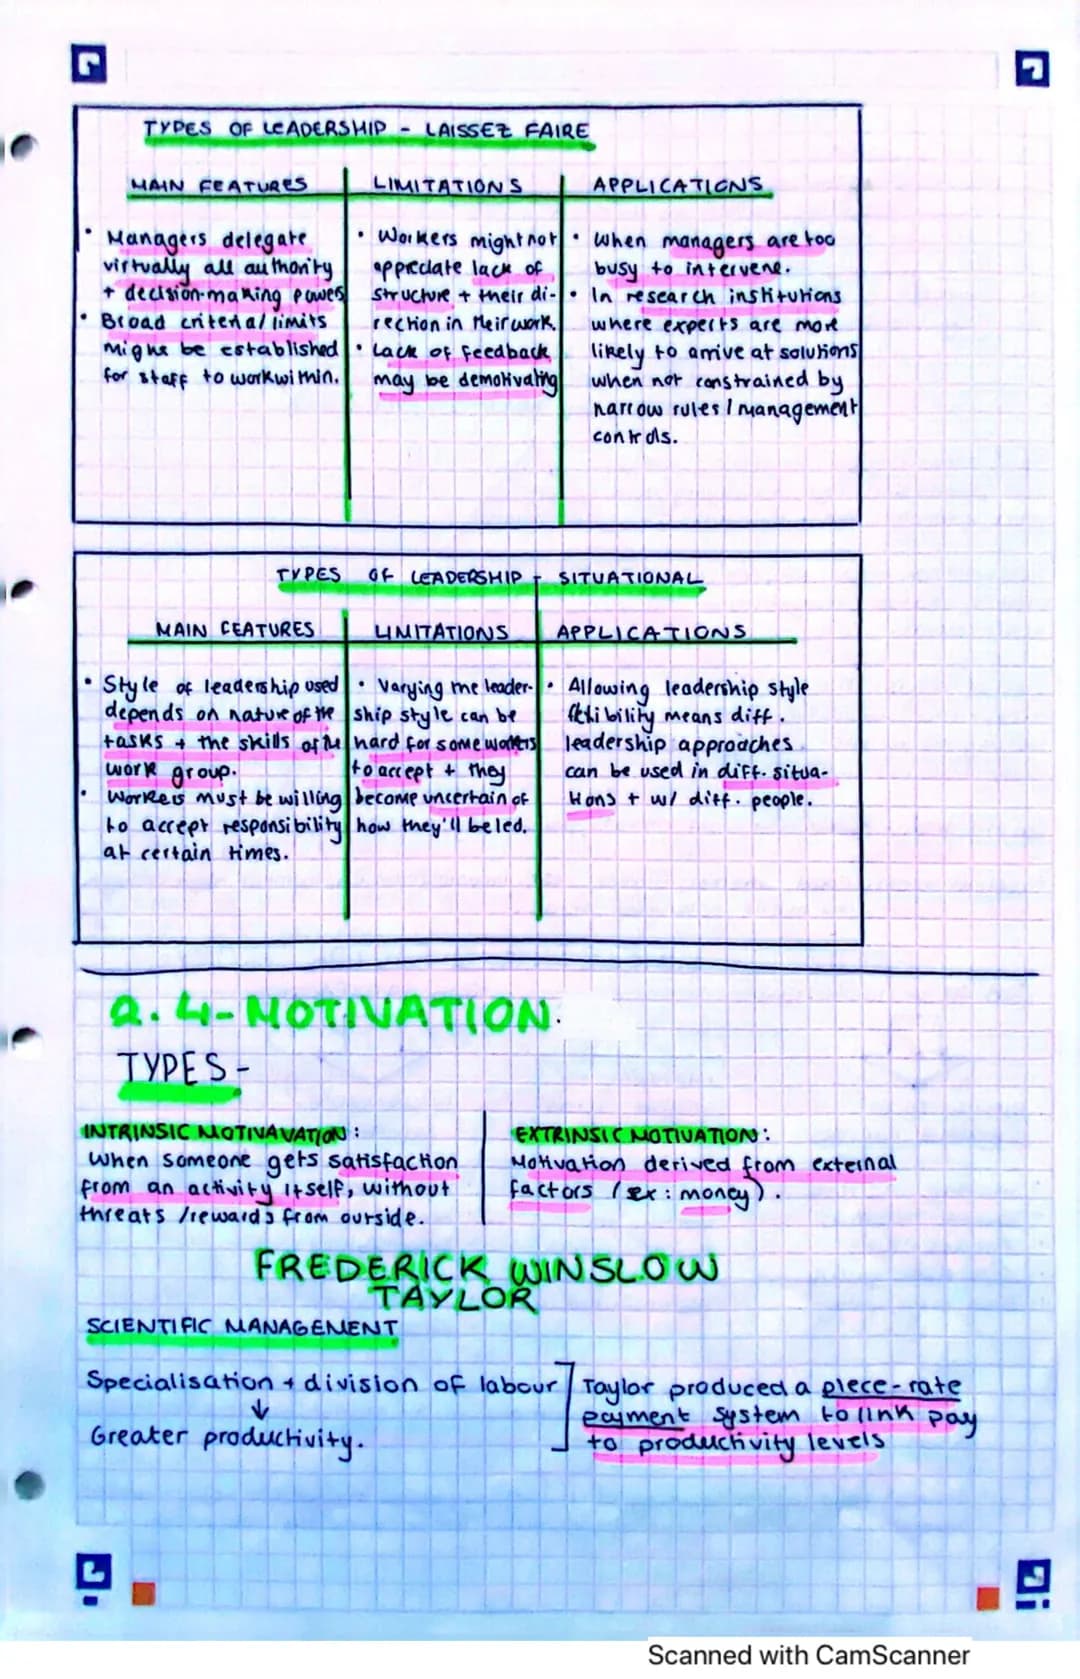 TYPES OF LEADERSHIP - LAISSEZ FAIRE
MAIN FEATURES
• Managers delegate
virtually all authority
+ decision-making power
• Broad criteria/limits
might be established
for staff to work within.
LIMITATIONS
• Workers might not
appreciate lack of
structure + their di-
rection in their work.
• Lack of feedback
may be demotivating
APPLICATIONS
• When managers are too
busy to intervene.
• In research institutions
where experts are more
likely to arrive at solutions
when not constrained by
narrow rules / management
controls.
TYPES OF LEADERSHIP - SITUATIONAL
MAIN FEATURES
• Style of leadership used
depends on nature of the
tasks + the skills of the
work group.
• Workers must be willing
to accept responsibility
at certain times.
LIMITATIONS
• Varying the leader-
ship style can be
hard for some workers
to accept + they
become uncertain of
how they'll be led.
APPLICATIONS
• Allowing leadership style
flexibility means diff.
leadership approaches
can be used in diff. situa-
tions + w/ diff. people.
2.4-MOTIVATION.
TYPES-
INTRINSIC MOTIVAVATION:
When someone gets satisfaction
from an activity itself, without
threats /rewards from outside.
EXTRINSIC MOTIVATION:
Motivation derived from external
factors (ex: money).
FREDERICK WINSLOW
TAYLOR
SCIENTIFIC MANAGEMENT
Specialisation + division of labour
↓
Greater productivity.
Taylor produced a piece-rate
payment system to link pay
to productivity levels
Scanned with CamScanner